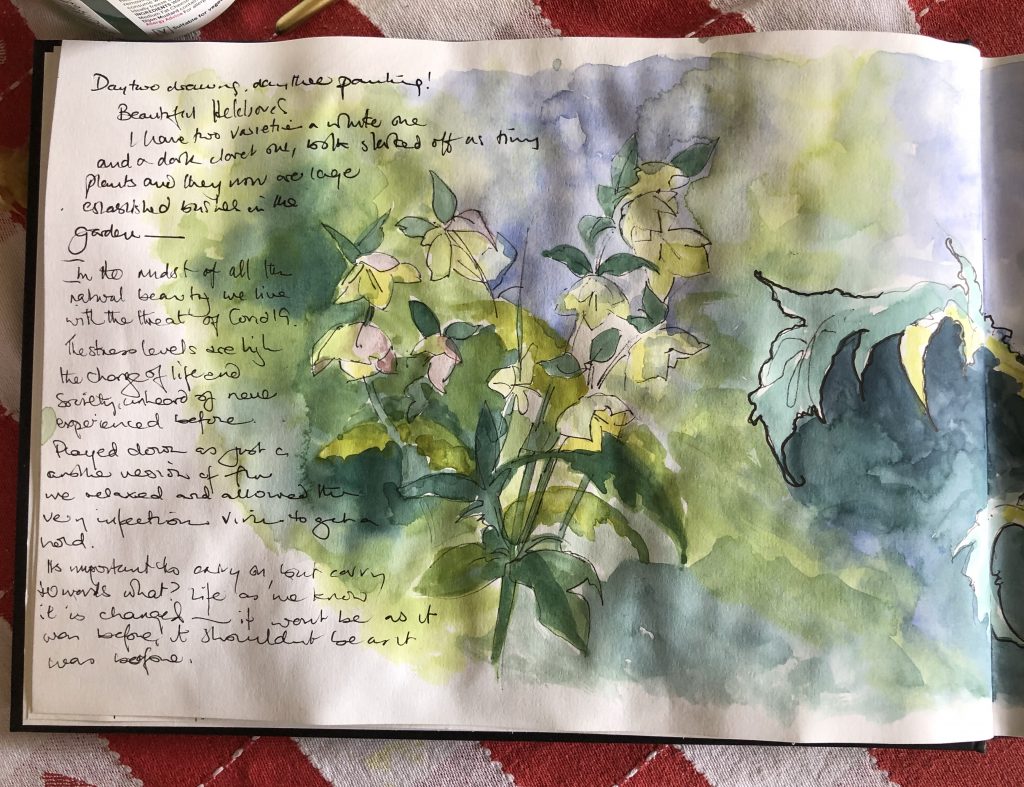 INGREDIENTS
Allergy Advice
Suitable for vege
Day two drawing, day three painting!
Beautiful Helebores
I have two varieties a white one
and a dark claret one, both started off as tiny
plants and they now are large
established bushes in the
garden —
In the midst of all the
natural beauty we live
with the threat of Covid19.
The stress levels are high
the change of life and
society, unheard of never
experienced before
Played down as just a
another version of flu
we relaxed and allowed the
very infectious virus to get a
hold.
Its important to carry on, but carry
towards what? Life as we know
it is changed — it wont be as it
was before, it shouldnt be as it
was before.